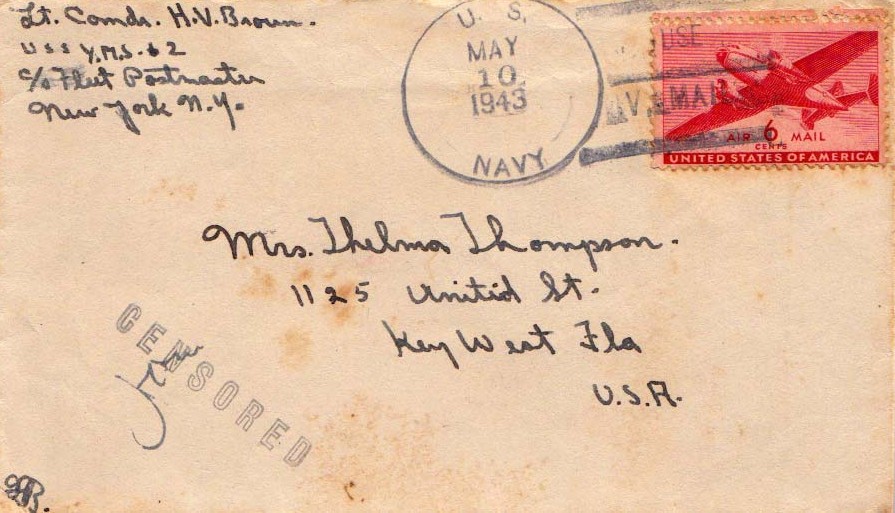 Lt. Comdr. H.V. Brown.
USS Y.M.S. 62
c/o Fleet Postmaster
New York N.Y.
U. S.
MAY
10
1943
NAVY
USE
V MAIL
AIR 6 MAIL
CENTS
UNITED STATES OF AMERICA
Mrs. Thelma Thompson.
1125 Unitid St.
Key West Fla
U.S.A.
CENSORED